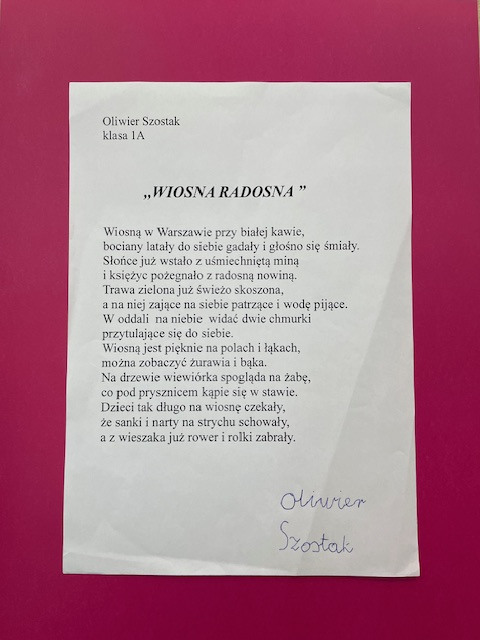 Oliwier Szostak
klasa 1A
„WIOSNA RADOSNA”
Wiosną w Warszawie przy białej kawie,
bociany latały do siebie gadały i głośno się śmiały.
Słońce już wstało z uśmiechniętą miną
i księżyc pożegnało z radosną nowiną.
Trawa zielona już świeżo skoszona,
a na niej zające na siebie patrzące i wodę pijące.
W oddali na niebie widać dwie chmurki
przytulające się do siebie.
Wiosną jest pięknie na polach i łąkach,
można zobaczyć żurawia i bąka.
Na drzewie wiewiórka spogląda na żabę,
co pod prysznicem kąpie się w stawie.
Dzieci tak długo na wiosnę czekały,
że sanki i narty na strychu schowały,
a z wieszaka już rower i rolki zabrały.
Oliwier
Szostak